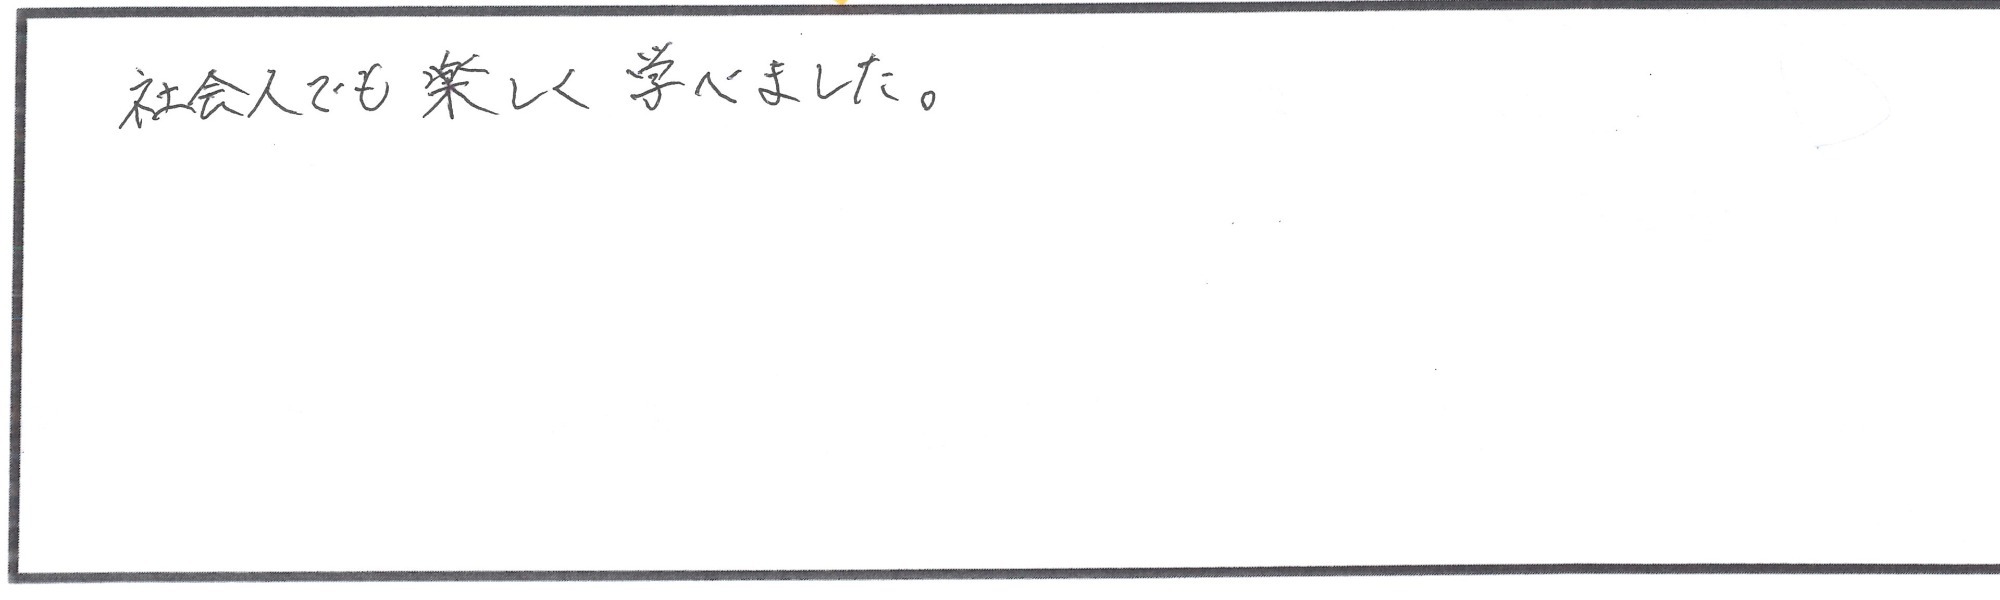 社会人でも楽しく学べました。